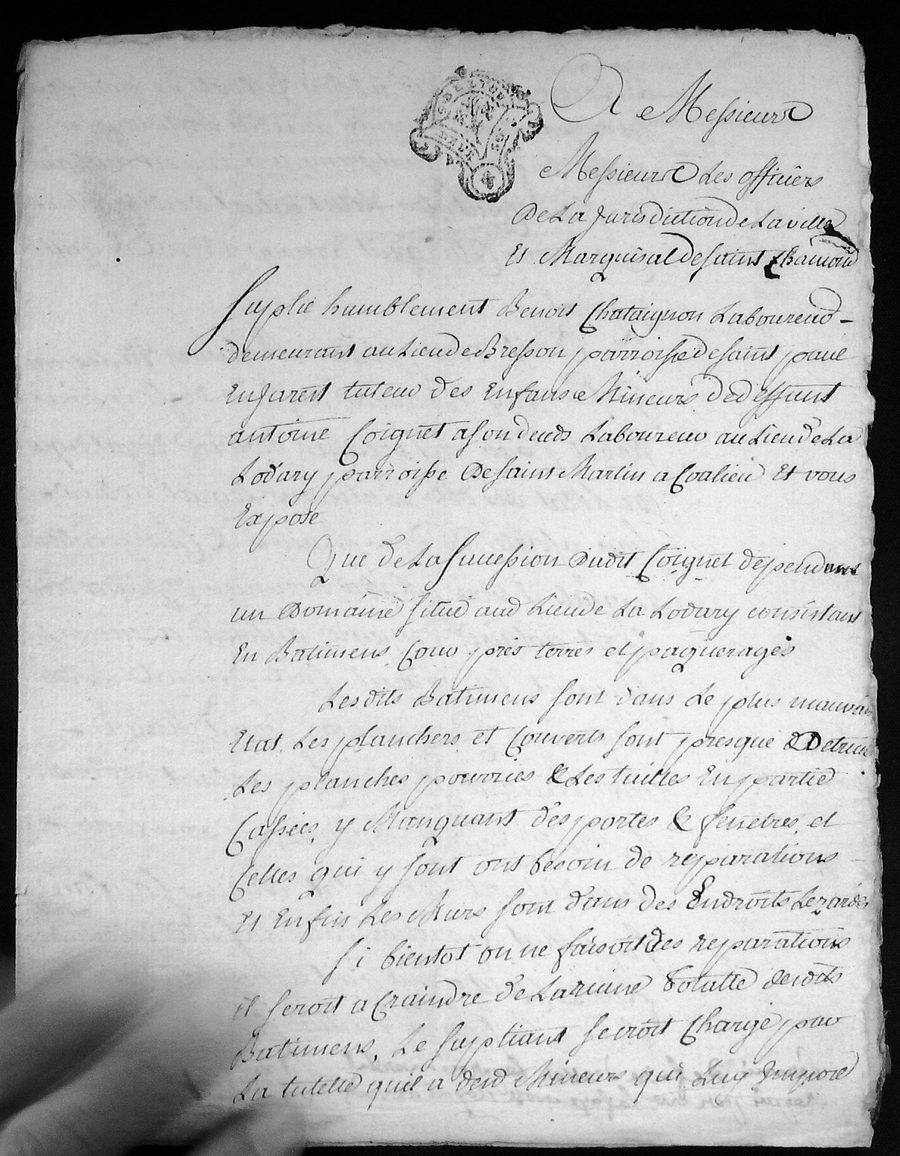 A Messieurs
Messieurs Les officiers
De La Jurisdiction de La ville
Et Marquisat de saint Chamond
Suplie humblement Benoit Chataignon Laboureur
demeurant au Lieu de Bresson parroisse de saint paul
En Jarest tuteur des Enfans Mineurs de deffunt
antoine Coignet a son deces Laboureur au Lieu de La
Lodary parroisse De saint Martin a Coalieu Et vous
Expose
Que de La sucession Dudit Coignet dependant
un Domaine situé aud Lieu de La Lodary consistant
En Batimens Cour prés terres et paquerages
Lesdits Batimens sont dans Le plus mauvais
Etat, Les planchers et Couverts sont presque Detruits
Les planches pourries & Les tuilles En partie
Cassées, y Manquant des portes & fenetres, et
Celles qui y sont ont besoin de reparations
Et Enfin Les Murs sont dans des Endroits Lezardés
si bientot on ne faisoit des reparations
il seroit a Craindre de La ruine totalle desdits
Batimens, Le supliant seroit Chargé par
La tutelle qu'il a desd Mineurs qui Luy Impose